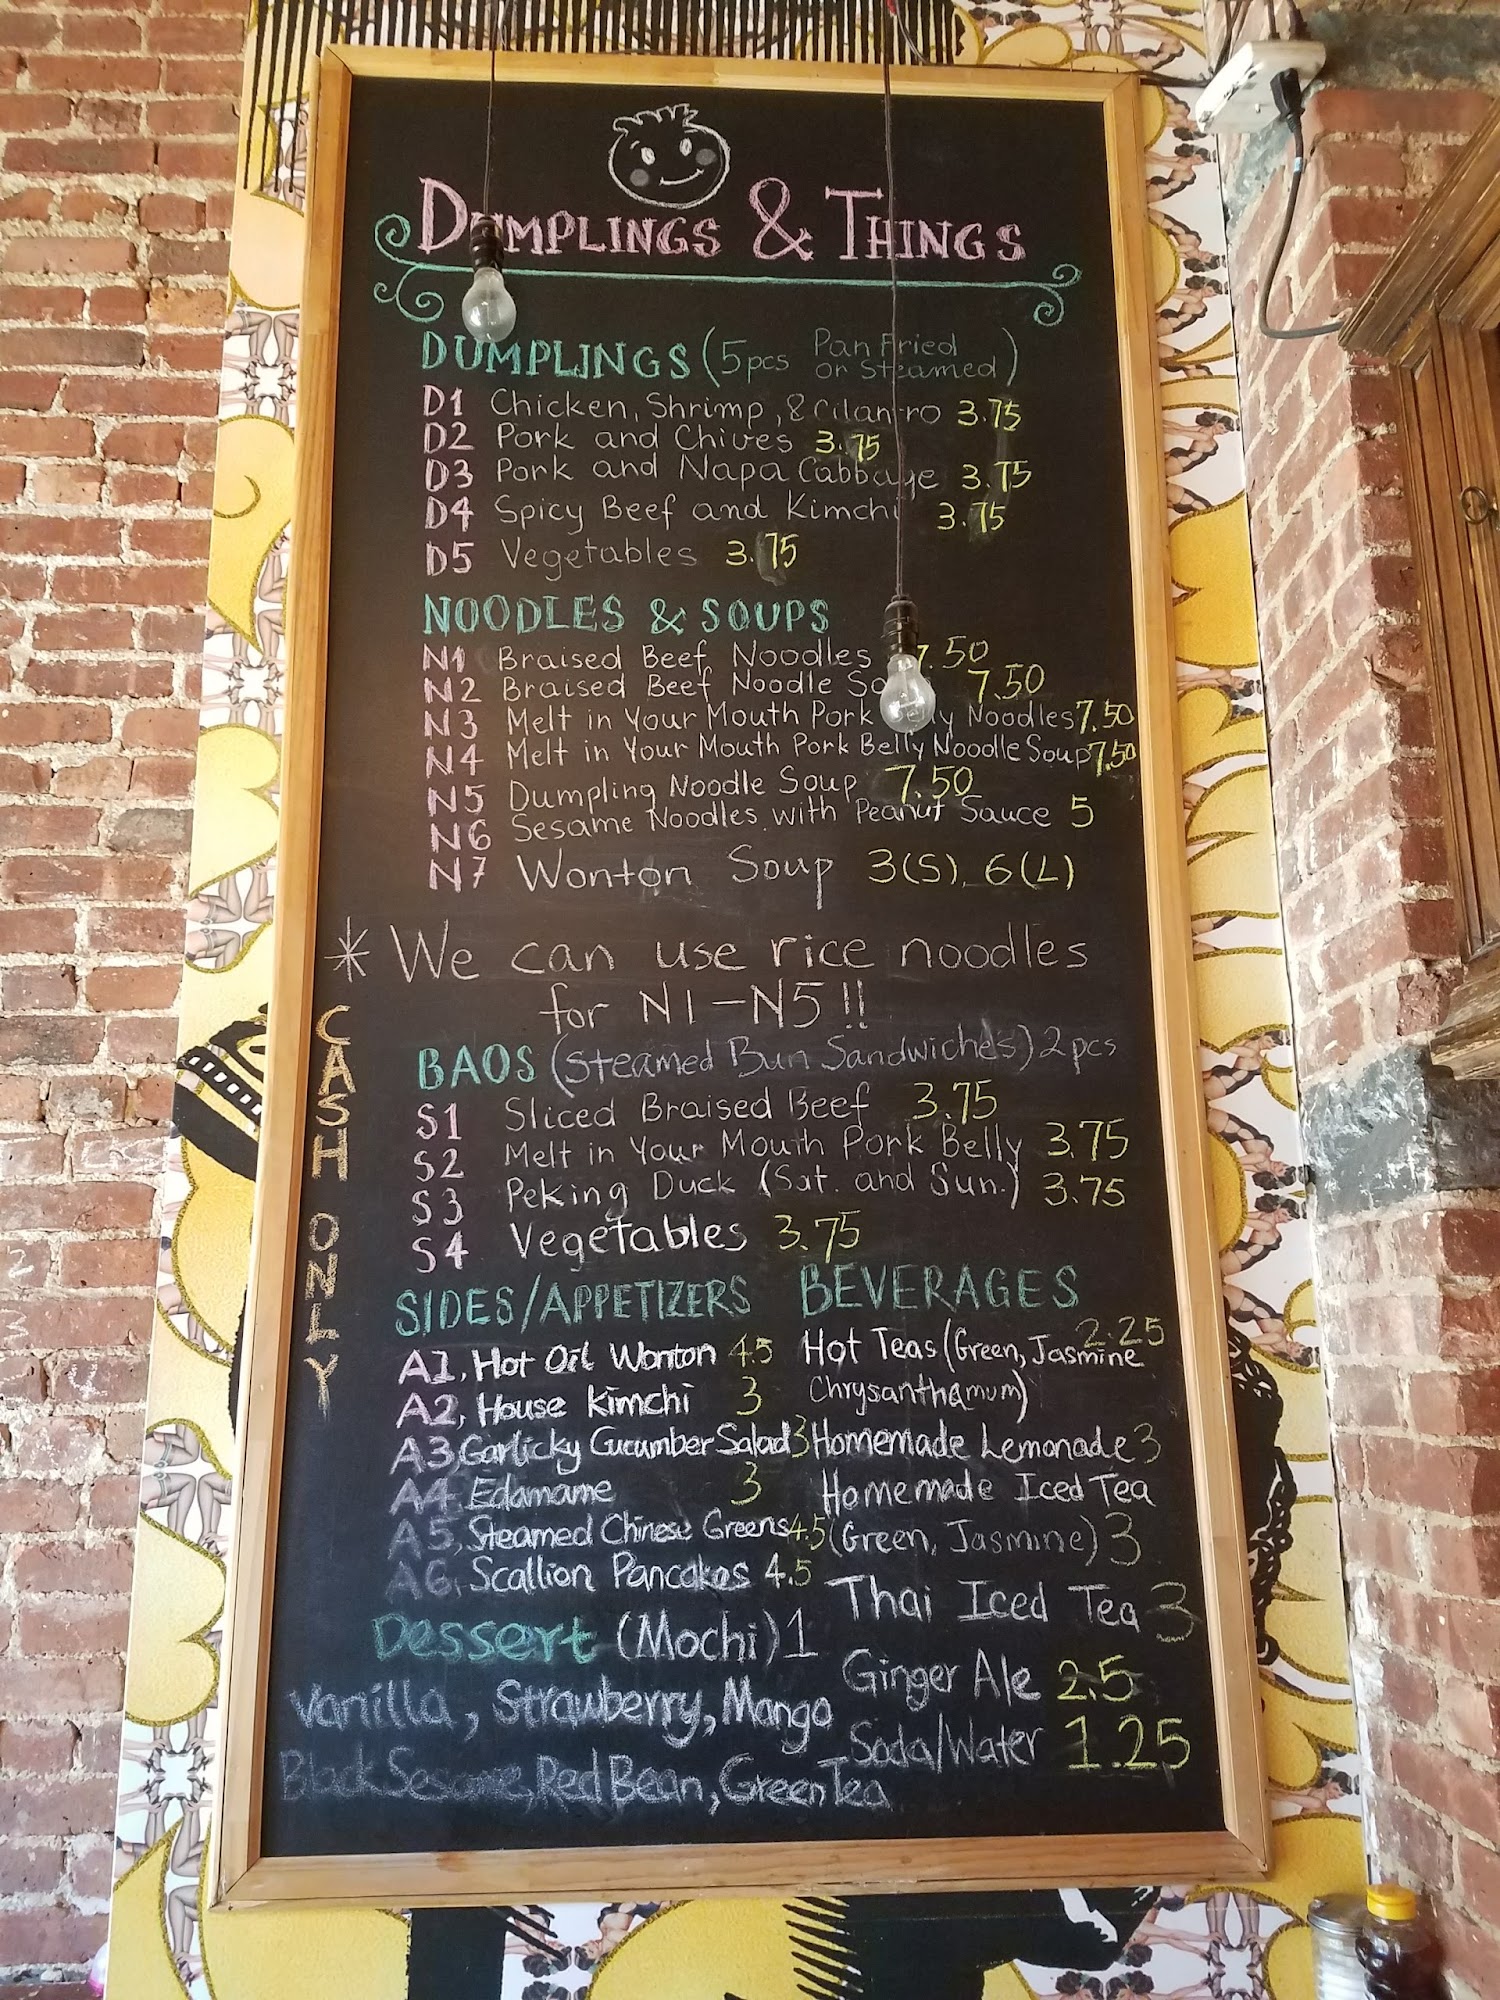 DUMPLINGS & THINGS
DUMPLINGS (5pcs Pan Fried or Steamed)
D1 Chicken, Shrimp, & Cilantro 3.75
D2 Pork and Chives 3.75
D3 Pork and Napa Cabbage 3.75
D4 Spicy Beef and Kimchi 3.75
D5 Vegetables 3.75
NOODLES & SOUPS
N1 Braised Beef Noodles 7.50
N2 Braised Beef Noodle Soup 7.50
N3 Melt in Your Mouth Pork Belly Noodles 7.50
N4 Melt in Your Mouth Pork Belly Noodle Soup 7.50
N5 Dumpling Noodle Soup 7.50
N6 Sesame Noodles with Peanut Sauce 5
N7 Wonton Soup 3(S), 6(L)
* We can use rice noodles
for N1-N5!!
CASH ONLY
BAOS (Steamed Bun Sandwiches) 2pcs
S1 Sliced Braised Beef 3.75
S2 Melt in Your Mouth Pork Belly 3.75
S3 Peking Duck (Sat. and Sun.) 3.75
S4 Vegetables 3.75
SIDES/APPETIZERS
A1, Hot Oil Wonton 4.5
A2, House Kimchi 3
A3, Garlicky Cucumber Salad 3
A4, Edamame 3
A5, Steamed Chinese Greens 4.5
A6, Scallion Pancakes 4.5
Dessert (Mochi) 1
Vanilla, Strawberry, Mango
Black Sesame, Red Bean, Green Tea
BEVERAGES
Hot Teas (Green, Jasmine 2.25
Chrysanthamum)
Homemade Lemonade 3
Homemade Iced Tea
(Green, Jasmine) 3
Thai Iced Tea 3
Ginger Ale 2.5
Soda/Water 1.25